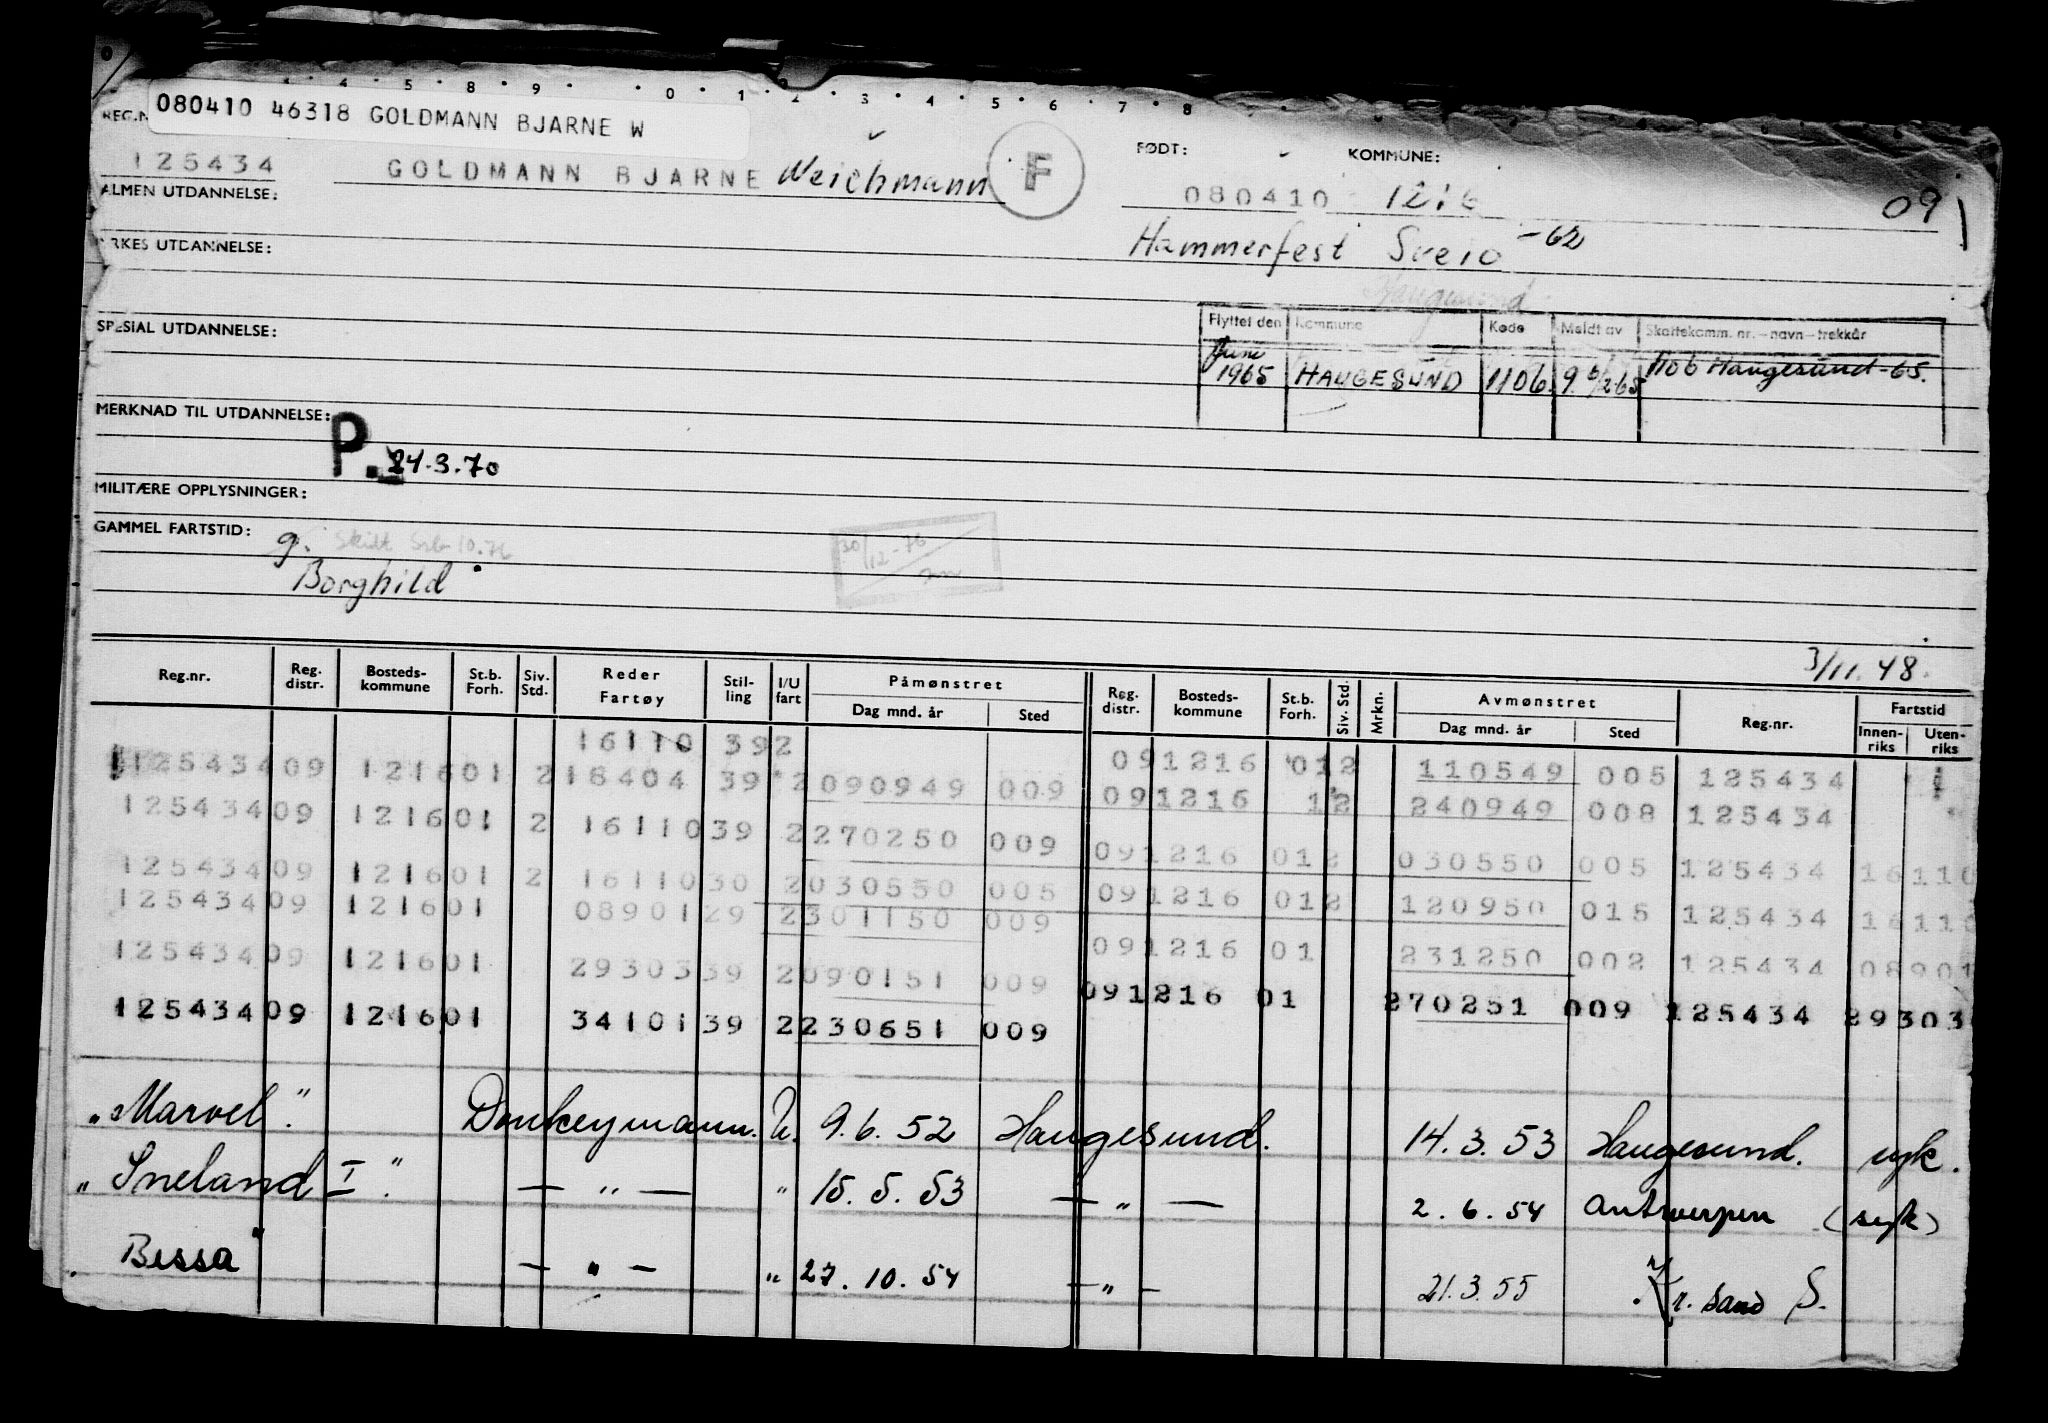 4 · 5 · 8 · 9 · · 0 · 1 · 2 · 3 · 4 · 5 · 6 · 7 · 8
080410 46318 GOLDMANN BJARNE W
125434 GOLDMANN BJARNE Weichmann F
FØDT: KOMMUNE:
080410 1216 09
ALMEN UTDANNELSE:
Hammerfest Sveio -62
YRKES UTDANNELSE:
Haugesund
SPESIAL UTDANNELSE:
Flyttet den Kommune Kode Meldt av Skattekomm. nr. – navn – trekkår
Juni 1965 HAUGESUND 1106 1106 Haugesund-65.
MERKNAD TIL UTDANNELSE:
P. 24.3.70
MILITÆRE OPPLYSNINGER:
GAMMEL FARTSTID: g.
30/12-76
Borghild
3/11.48.
Reg.nr. Reg. distr. Bosteds-kommune St.b. Forh. Siv. Std. Reder Fartøy Stil-ling I/U fart Påmønstret Dag mnd. år Sted Reg. distr. Bosteds-kommune St.b. Forh. Siv. Std. Mrkn. Avmønstret Dag mnd. år Sted Reg.nr. Fartstid Innen-riks Uten-riks
16110 392 091216 012 110549 005 125434
125434 09 1216 01 2 18404 39 2 090949 009 091216 12 240949 008 125434
125434 09 1216 01 2 16110 39 2 270250 009 091216 012 030550 005 125434 16110
125434 09 1216 01 2 16110 30 2 030550 005 091216 012 120950 015 125434 16110
125434 09 1216 01 08901 29 2 301150 009 091216 01 231250 002 125434 08901
125434 09 1216 01 29303 39 2 090151 009 091216 01 270251 009 125434 29303
125434 09 1216 01 34101 39 2 230651 009
„Marvel". Donkeymann. U. 9.6.52 Haugesund. 14.3.53 Haugesund. syk.
„Sneland I". — „ — " 15.5.53 — „ — 2.6.54 Antwerpen (syk)
„Bessa" — " — " 27.10.54 — " — 21.3.55 Kr. sand S.